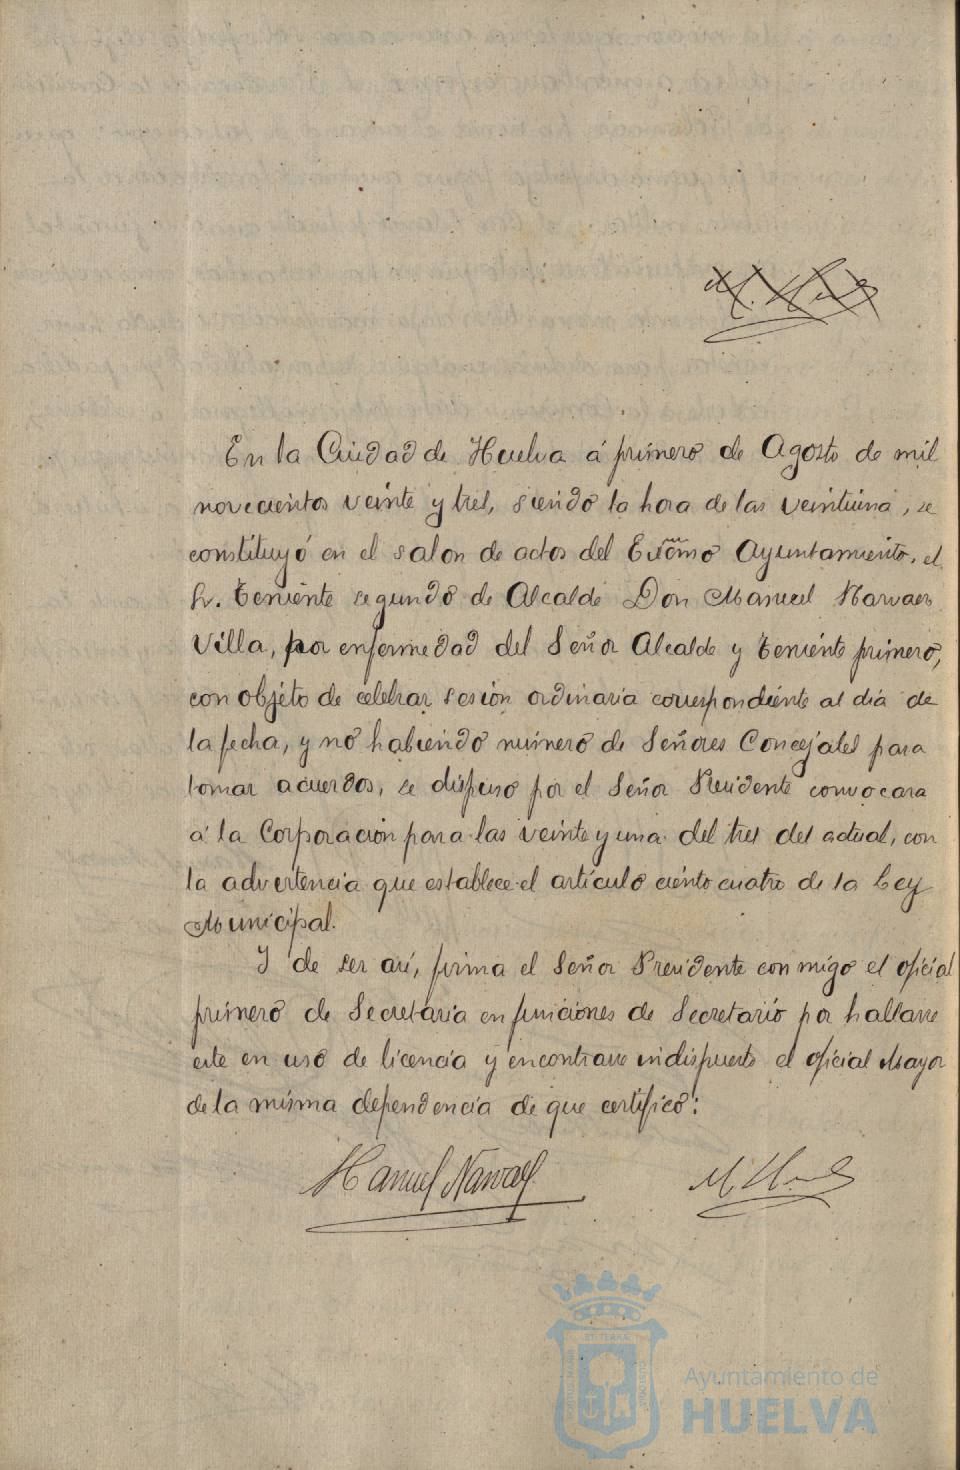 En la Ciudad de Huelva á primero de Agosto de mil
novecientos veinte y tres, siendo la hora de las veintiuna, se
constituyó en el salon de actos del Excmo Ayuntamiento, el
Sr. Teniente segundo de Alcalde Don Manuel Narvaez
Villa, por enfermedad del Señor Alcalde y Teniente primero,
con objeto de celebrar sesion ordinaria correspondiente al dia de
la fecha, y no habiendo número de Señores Concejales para
tomar acuerdos, se dispuso por el Señor Presidente convocara
a la Corporación para las veinte y una del tres del actual, con
la advertencia que establece el artículo ciento cuatro de la Ley
Municipal.
Y de ser así, firma el Señor Presidente conmigo el oficial
primero de Secretaria en funciones de Secretario por hallarse
este en uso de licencia y encontrarse indispuesto el oficial Mayor
de la misma dependencia de que certifico:
Manuel Narvaez
Ayuntamiento de
HUELVA